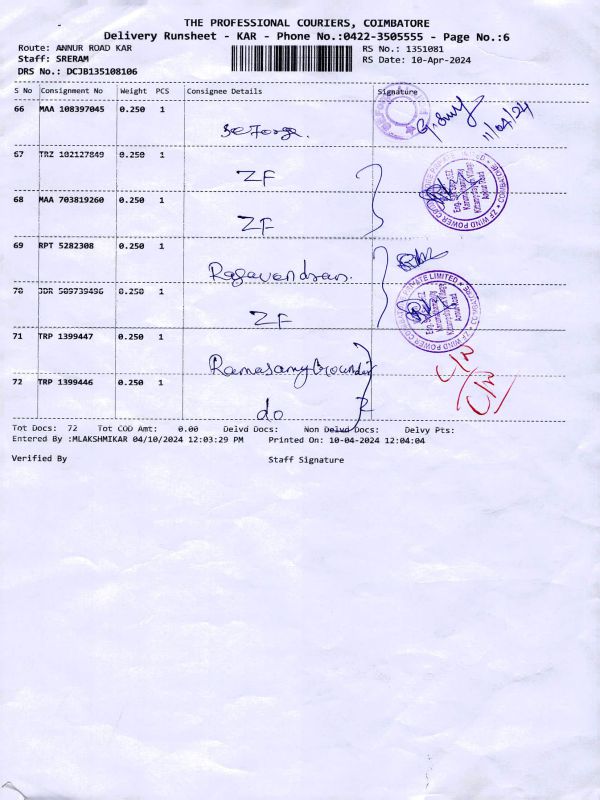 THE PROFESSIONAL COURIERS, COIMBATORE
Delivery Runsheet - KAR - Phone No.:0422-3505555 - Page No.:6
Route: ANNUR ROAD KAR RS No.: 1351081
Staff: SRERAM RS Date: 10-Apr-2024
DRS No.: DCJB135108106
S No Consignment No Weight PCS Consignee Details Signature
66 MAA 108397045 0.250 1
11/04/24
67 TRZ 102127849 0.250 1
ZF
68 MAA 703819260 0.250 1
ZF
69 RPT 5282308 0.250 1
Ragavendran.
70 JDR 509739496 0.250 1
ZF
71 TRP 1399447 0.250 1
Ramasamy Gounder
72 TRP 1399446 0.250 1
do
Tot Docs: 72 Tot COD Amt: 0.00 Delvd Docs: Non Delvd Docs: Delvy Pts:
Entered By :MLAKSHMIKAR 04/10/2024 12:03:29 PM Printed On: 10-04-2024 12:04:04
Verified By Staff Signature